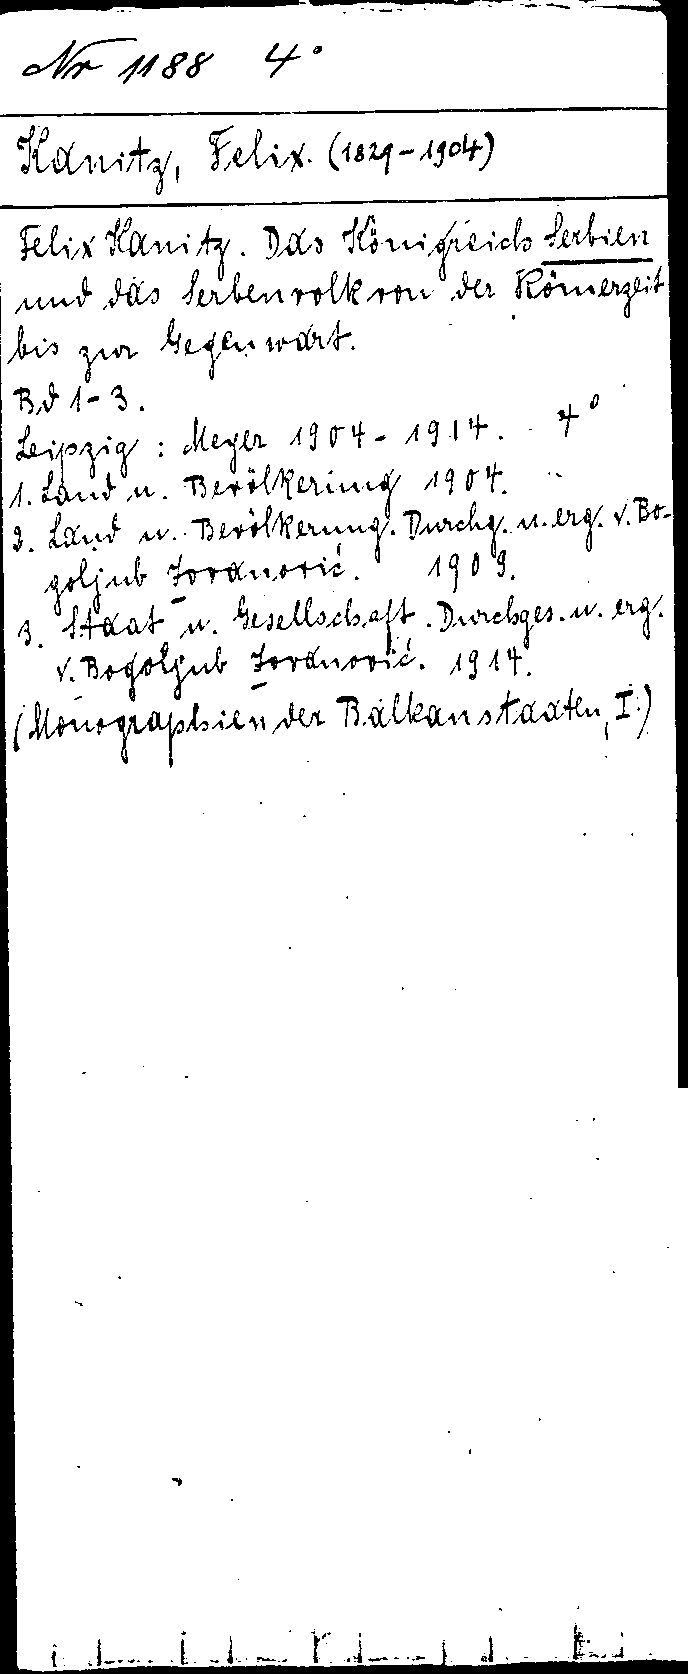 Nr 1188 4°
Kanitz, Felix. (1829-1904)
Felix Kanitz. Das Königreich Serbien
und das Serbenvolk von der Römerzeit
bis zur Gegenwart.
Bd 1-3.
Leipzig: Meyer 1904-1914. 4°
1. Land u. Bevölkerung 1904.
2. Land u. Bevölkerung. Durchg. u. erg. v. Bo-
goljub Jovanović. 1909.
3. Staat u. Gesellschaft. Durchges. u. erg.
v. Bogoljub Jovanović. 1914.
(Monographien der Balkanstaaten, I.)